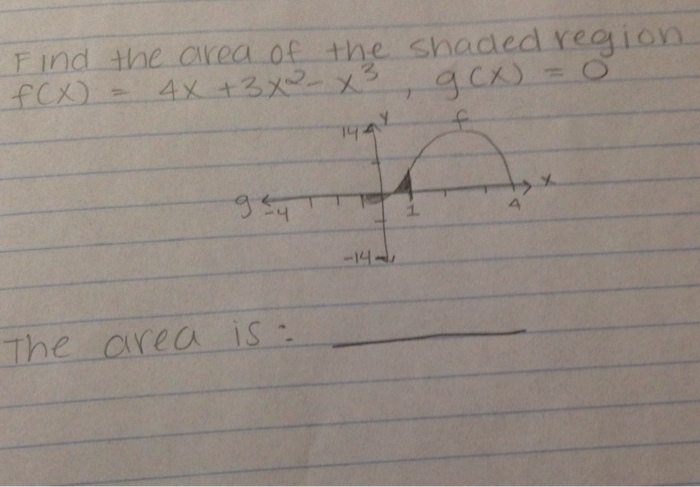 Find the area of the shaded region
f(x) = 4x + 3x² - x³, g(x) = 0
14 y f
g -4 1 4 x
-14
The area is: